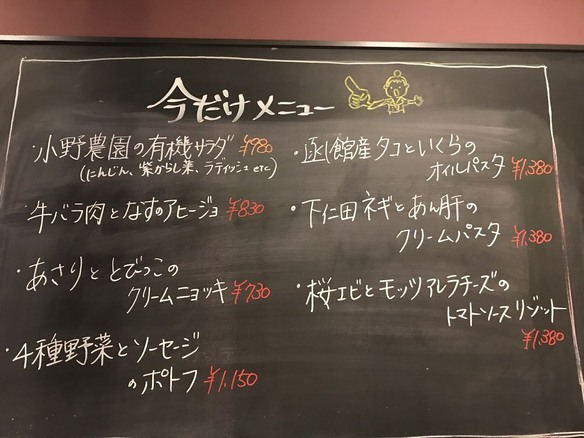 今だけメニュー
・小野農園の有機サラダ ¥980
(にんじん、紫からし菜、ラディッシュetc)
・牛バラ肉となすのアヒージョ ¥830
・あさりととびっこの
クリームニョッキ ¥730
・4種野菜とソーセージ
のポトフ ¥1,150
・函館産タコといくらの
オイルパスタ ¥1,380
・下仁田ネギとあん肝の
クリームパスタ ¥1,380
・桜エビとモッツァレラチーズの
トマトソースリゾット
¥1,380